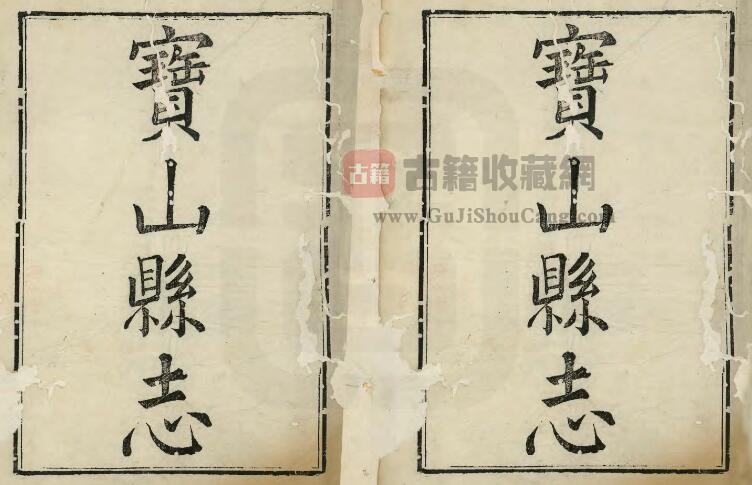 寶山縣志
寶山縣志
古籍
古籍收藏網
www.GuJiShouCang.com